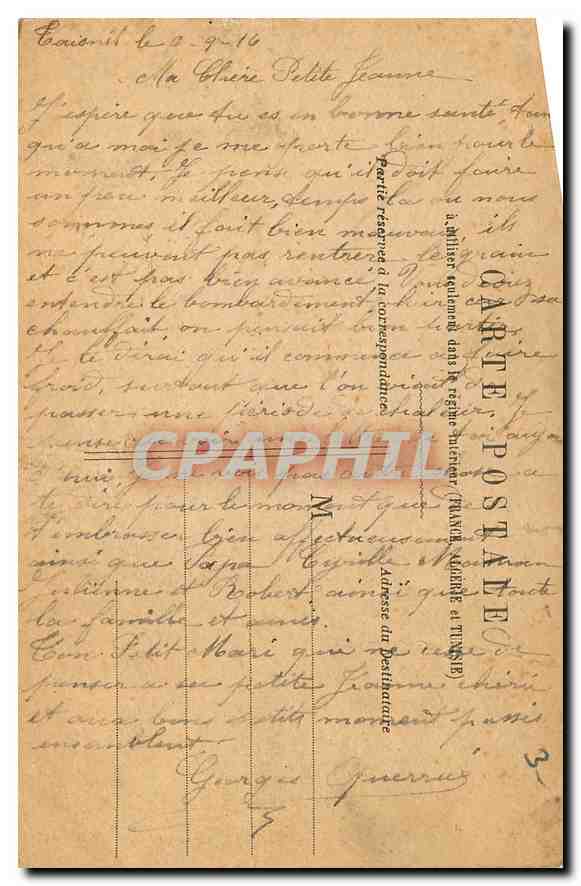 le 2-9-16
Ma Chère Petite Jeanne
J'espère que tu es en bonne santé
qu'a moi je me porte bien pour le
moment, Je pense qu'il doit faire
un peu meilleur, temps la ou nous
sommes il fait bien mauvais ils
ne peuvent pas rentrer le grain
et c'est pas bien avancé,
entendre le bombardement hier
on
Je te dirai qu'il commence a faire
froid, surtout que l'on vient de
passer une période de chaleur, Je
pense
je ne vois pas autre chose a
te dire pour le moment que de
t'embrasser bien affectueusement
ainsi que Papa Cyrille Maman
Julienne et Robert ainsi que toute
la famille et amis.
Ton Petit Mari qui ne cesse de
penser a sa petite Jeanne chérie
et aux bons petits moment passés
ensemblent
Georges
CARTE POSTALE
à utiliser seulement dans le régime intérieur (FRANCE, ALGÉRIE et TUNISIE)
Partie réservée à la correspondance
Adresse du Destinataire
M
3
CPAPHIL